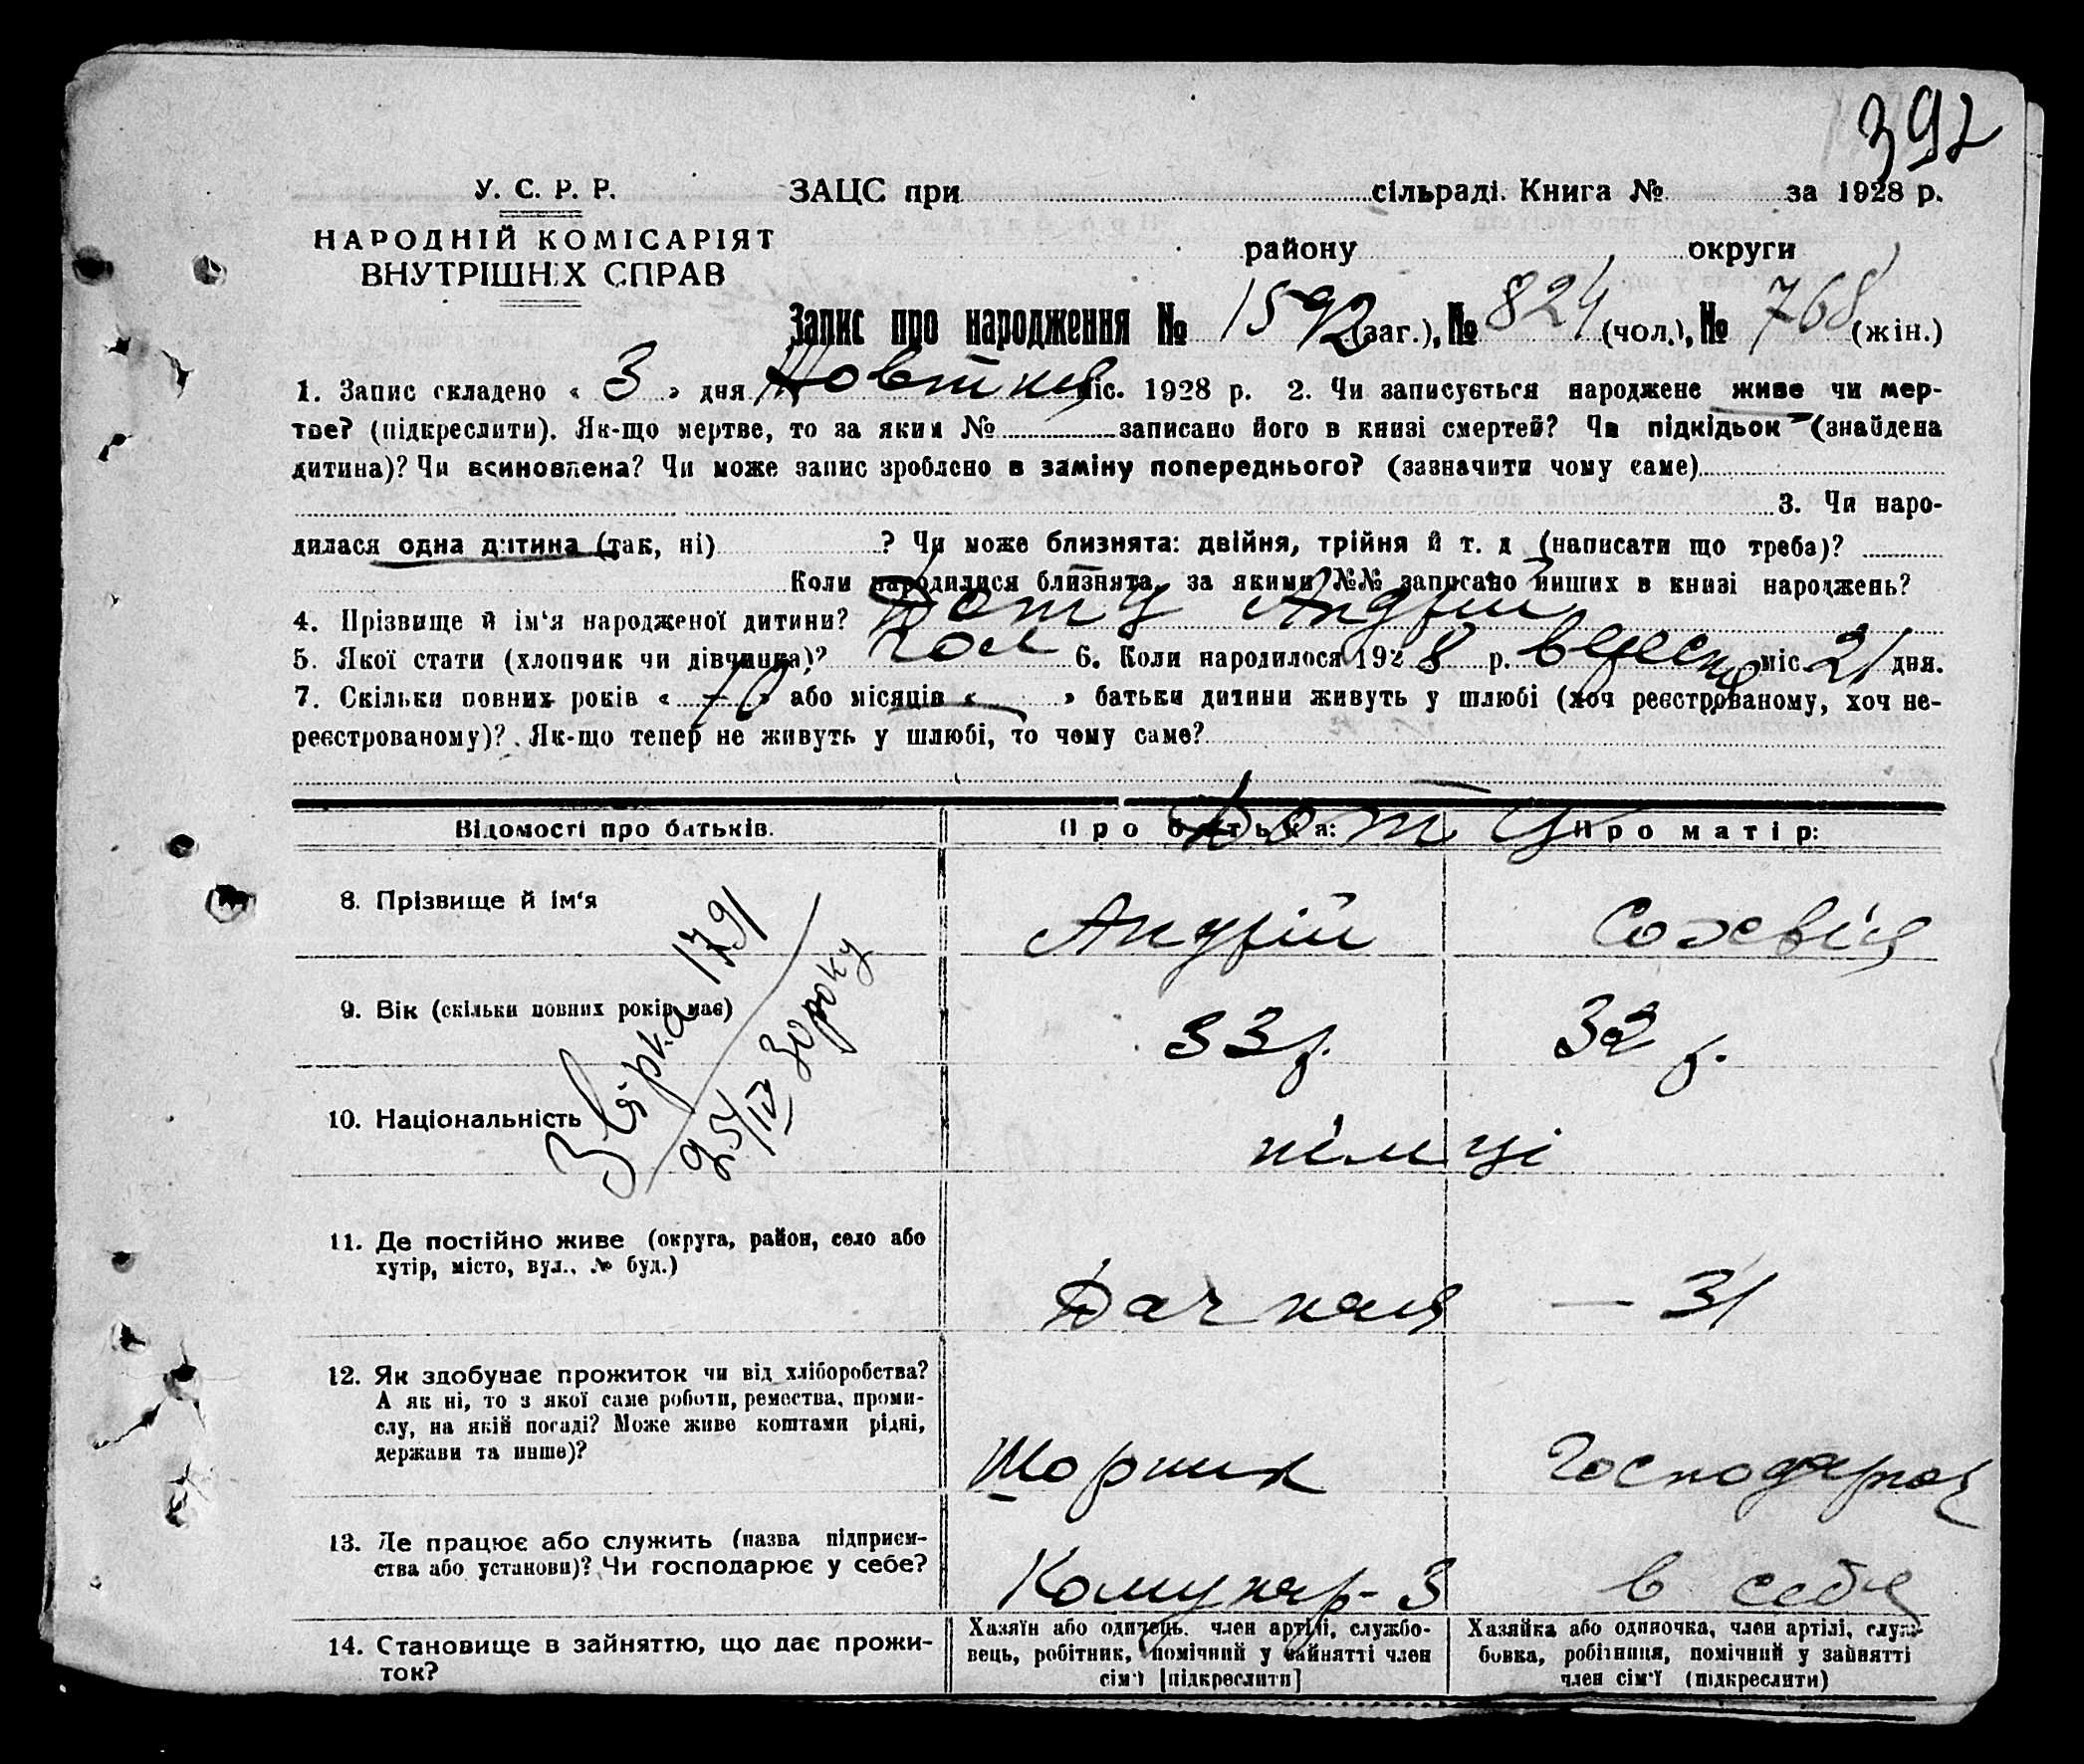 392
У. С. Р. Р.
НАРОДНІЙ КОМІСАРІЯТ
ВНУТРІШНІХ СПРАВ
ЗАЦС при сільраді. Книга № за 1928 р.
району округи
Запис про народження № 1592 (заг.), № 824 (чол.), № 768 (жін.)
1. Запис складено « 3 » дня Жовтня міс. 1928 р. 2. Чи записується народжене живе чи мер-
тве? (підкреслити). Як-що мертве, то за яким № записано його в книзі смертей? Чи підкідьок (знайдена
дитина)? Чи всиновлена? Чи може запис зроблено в заміну попереднього? (зазначити чому саме)
3. Чи наро-
дилася одна дитина (так, ні) ? Чи може близнята: двійня, трійня й т. д (написати що треба)?
Коли народилися близнята, за якими №№ записано инших в книзі народжень?
4. Прізвище й ім‘я народженої дитини? Дотц Андрій
5. Якої стати (хлопчик чи дівчинка)? чол 6. Коли народилося 1928 р. вересня міс. 21 дня.
7. Скільки повних років « 10 » або місяців « » батьки дитини живуть у шлюбі (хоч реєстрованому, хоч не-
реєстрованому)? Як-що тепер не живуть у шлюбі, то чому саме?
Відомості про батьків. Про батька: Про матір:
Дотц
8. Прізвище й ім‘я Андрій
9. Вік (скільки повних років має) 33 р. 32 р.
10. Національність німці
Звірка 1791
25/IV 30 року
11. Де постійно живе (округа, район, село або
хутір, місто, вул., № буд.)
Дачная — 31
12. Як здобуває прожиток чи від хліборобства?
А як ні, то з якої саме роботи, ремества, проми-
слу, на якій посаді? Може живе коштами рідні,
держави та инше)?
Шорник Господарка
13. Де працює або служить (назва підприєм-
ства або установи)? Чи господарює у себе?
Комунар-3 в себя
14. Становище в зайняттю, що дає прожи-
ток?
Хазяїн або одинець, член артілі, службо-
вець, робітник, помічний у зайнятті член
сім‘ї [підкреслити]
Хазяйка або одиночка, член артілі, служ-
бовка, робітниця, помічний у зайнятті
член сім‘ї (підкреслити)